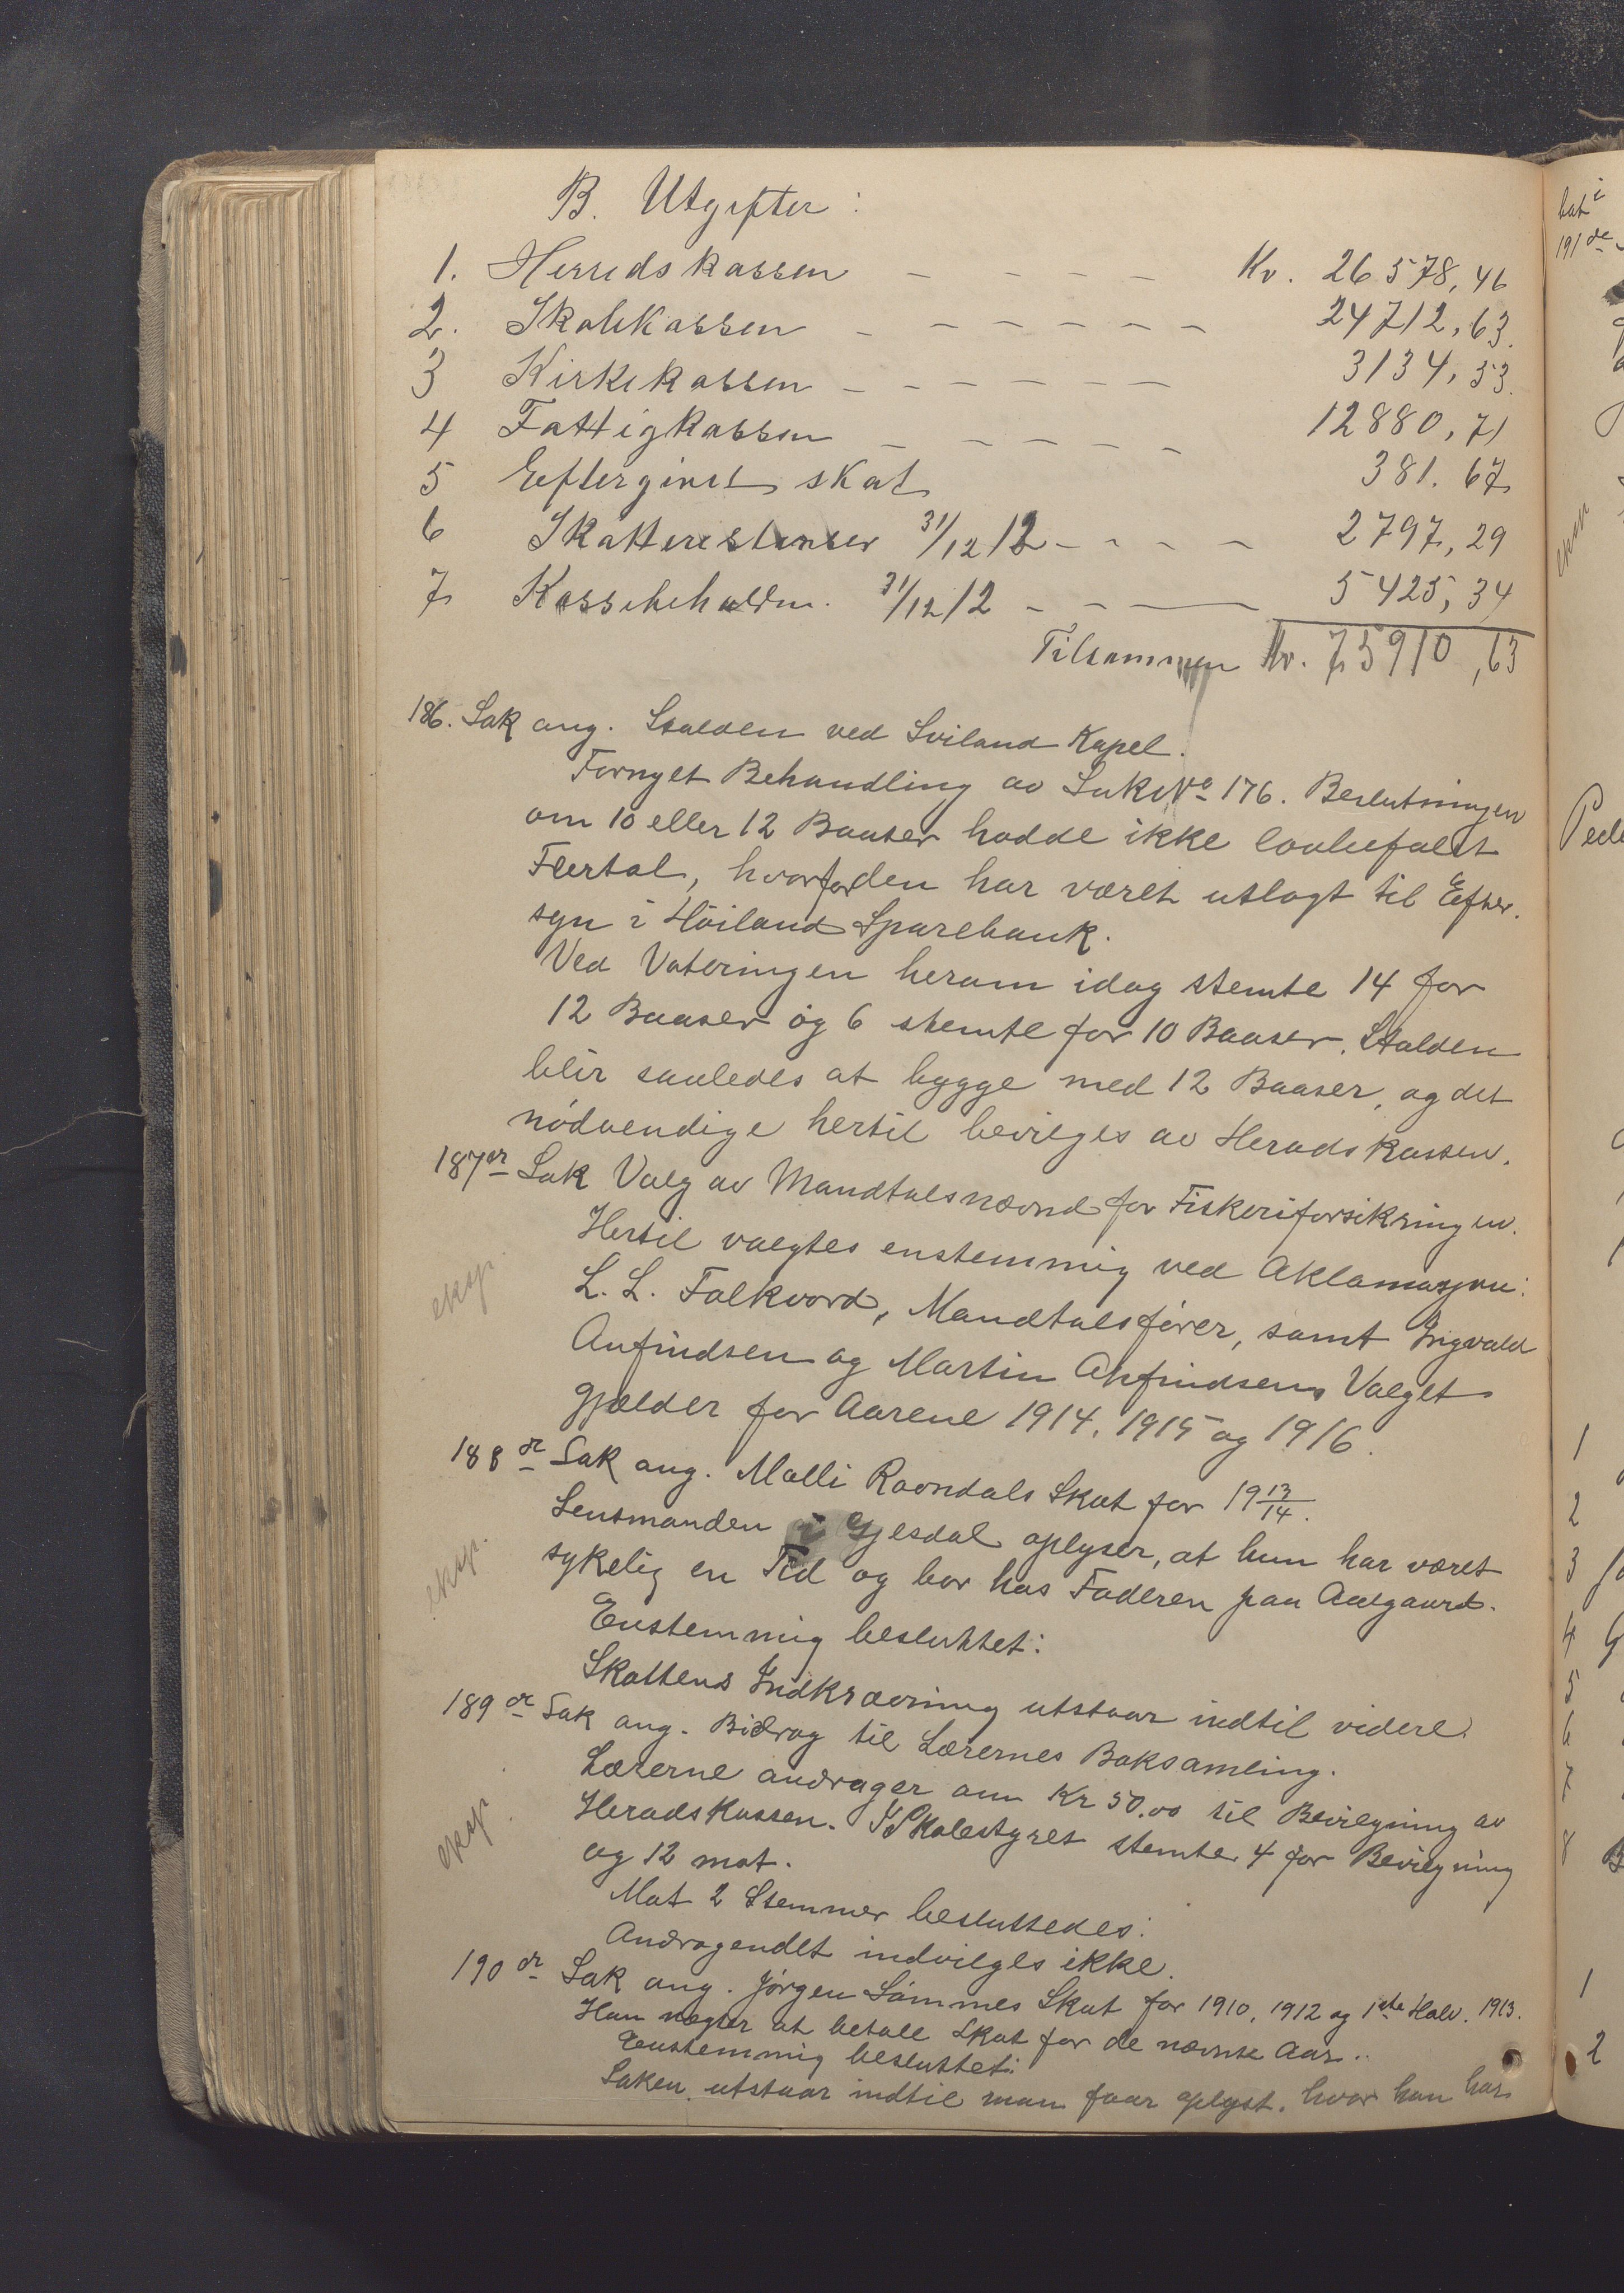 B. Utgifter:
1. Herredskassen — — — — Kr. 26578,46
2. Skolekassen — — — — — — 24712,63
3 Kirkekassen — — — — — — 3134,53
4 Fattigkassen — — — — — 12880,71
5 Eftergivet skat 381.67
6 Skatterestanser 31/12 12 - - - - 2797,29
7 Kassebeholdn. 31/12 12 - - — 5425,34
Tilsammen Kr. 75910,63
186. Sak ang. Stalden ved Sviland Kapel.
Fornyet Behandling av Sak No 176. Beslutningen
om 10 eller 12 Baaser hadde ikke lovbefalt
Flertal, hvorfor den har været utlagt til Efter-
syn i Höiland Sparebank.
Ved Voteringen herom idag stemte 14 for
12 Baaser og 6 stemte for 10 Baaser. Stalden
blir saaledes at bygge med 12 Baaser, og det
nödvendige hertil bevilges av Heradskassen.
187de Sak Valg av Mandtalsnævnd for Fiskeriforsikringen.
Hertil valgtes enstemmig ved Aklamasjon:
L. L. Folkvord, Mandtalsfører, samt Ingvald
Anfindsen og Martin Anfindsen, Valget
gjælder for Aarene 1914, 1915 og 1916.
eksp
188de Sak ang. Malli Ravndals Skat for 19 13/14.
Lensmanden i Gjesdal oplyser, at hun har været
sykelig en Tid og bor hos Faderen paa Aalgaard.
Enstemmig besluttet:
Skattens Indkrævning utstaar indtil videre.
eksp.
189de Sak ang. Bidrag til Lærernes Boksamling.
Lærerne andrager om Kr 50.00 til Bevilgning av
Heradskassen. I Skolestyret stemte 4 for Bevilgning
og 12 mot.
Mot 2 Stemmer besluttedes:
Andragendet indvilges ikke.
eksp.
190de Sak ang. Jörgen Sömmes Skat for 1910, 1912 og 1ste Halv. 1913.
Han negter at betale Skat for de nævnte Aar..
Enstemmig besluttet:
Saken utstaar indtil man faar oplyst, hvor han har
hat i
191de
Pede
1
2
3
4
5
6
7
8
1
2